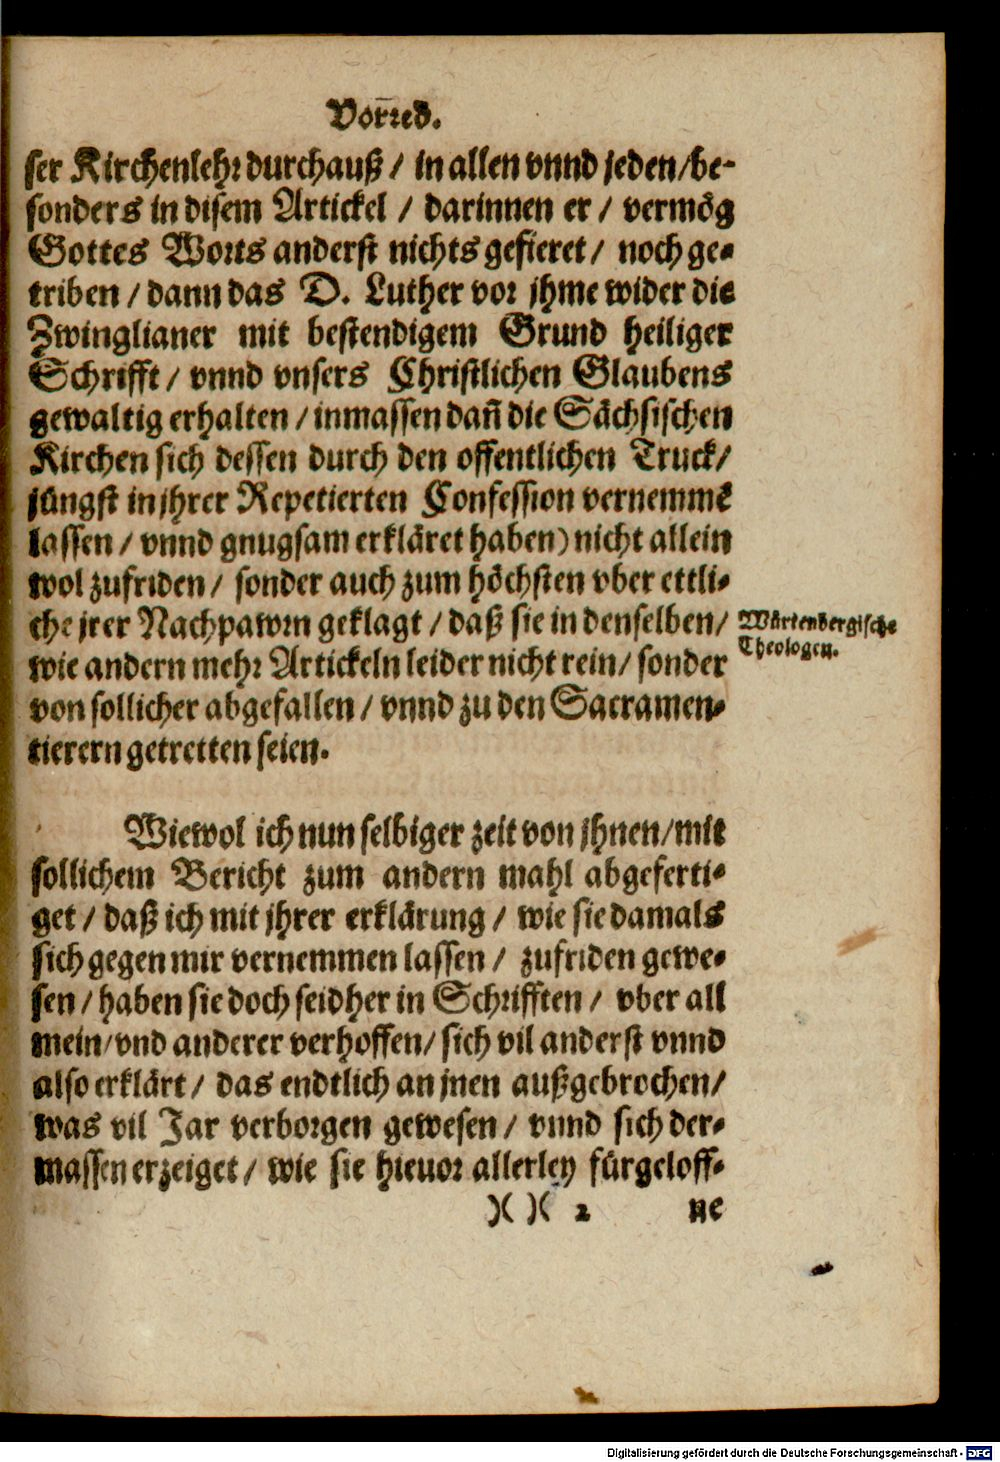 Vorred.
ser Kirchenlehr durchauß / in allen vnnd jeden / be-
sonders in disem Artickel / darinnen er / vermög
Gottes Worts anderst nichts gefieret / noch ge-
triben / dann das D. Luther vor jhme wider die
Zwinglianer mit bestendigem Grund heiliger
Schrifft / vnnd vnsers Christlichen Glaubens
gewaltig erhalten / inmassen dañ die Sächsischen
Kirchen sich dessen durch den offentlichen Truck /
jüngst in jhrer Repetierten Confession vernemmē
lassen / vnnd gnugsam erkläret haben) nicht allein
wol zufriden / sonder auch zum höchsten vber ettli-
che jrer Nachpawrn geklagt / daß sie in denselben /
Würtenbergische
Theologen.
wie andern mehr Artickeln leider nicht rein / sonder
von sollicher abgefallen / vnnd zu den Sacramen-
tierern getretten seien.
Wiewol ich nun selbiger zeit von jhnen / mit
sollichem Bericht zum andern mahl abgeferti-
get / daß ich mit jhrer erklärung / wie sie damals
sich gegen mir vernemmen lassen / zufriden gewe-
sen / haben sie doch seidher in Schrifften / vber all
mein / vnd anderer verhoffen / sich vil anderst vnnd
also erklärt / das endtlich an jnen außgebrochen /
was vil Jar verborgen gewesen / vnnd sich der-
massen erzeiget / wie sie hieuor allerley fürgeloff-
)( )( 2 ne
Digitalisierung gefördert durch die Deutsche Forschungsgemeinschaft - DFG